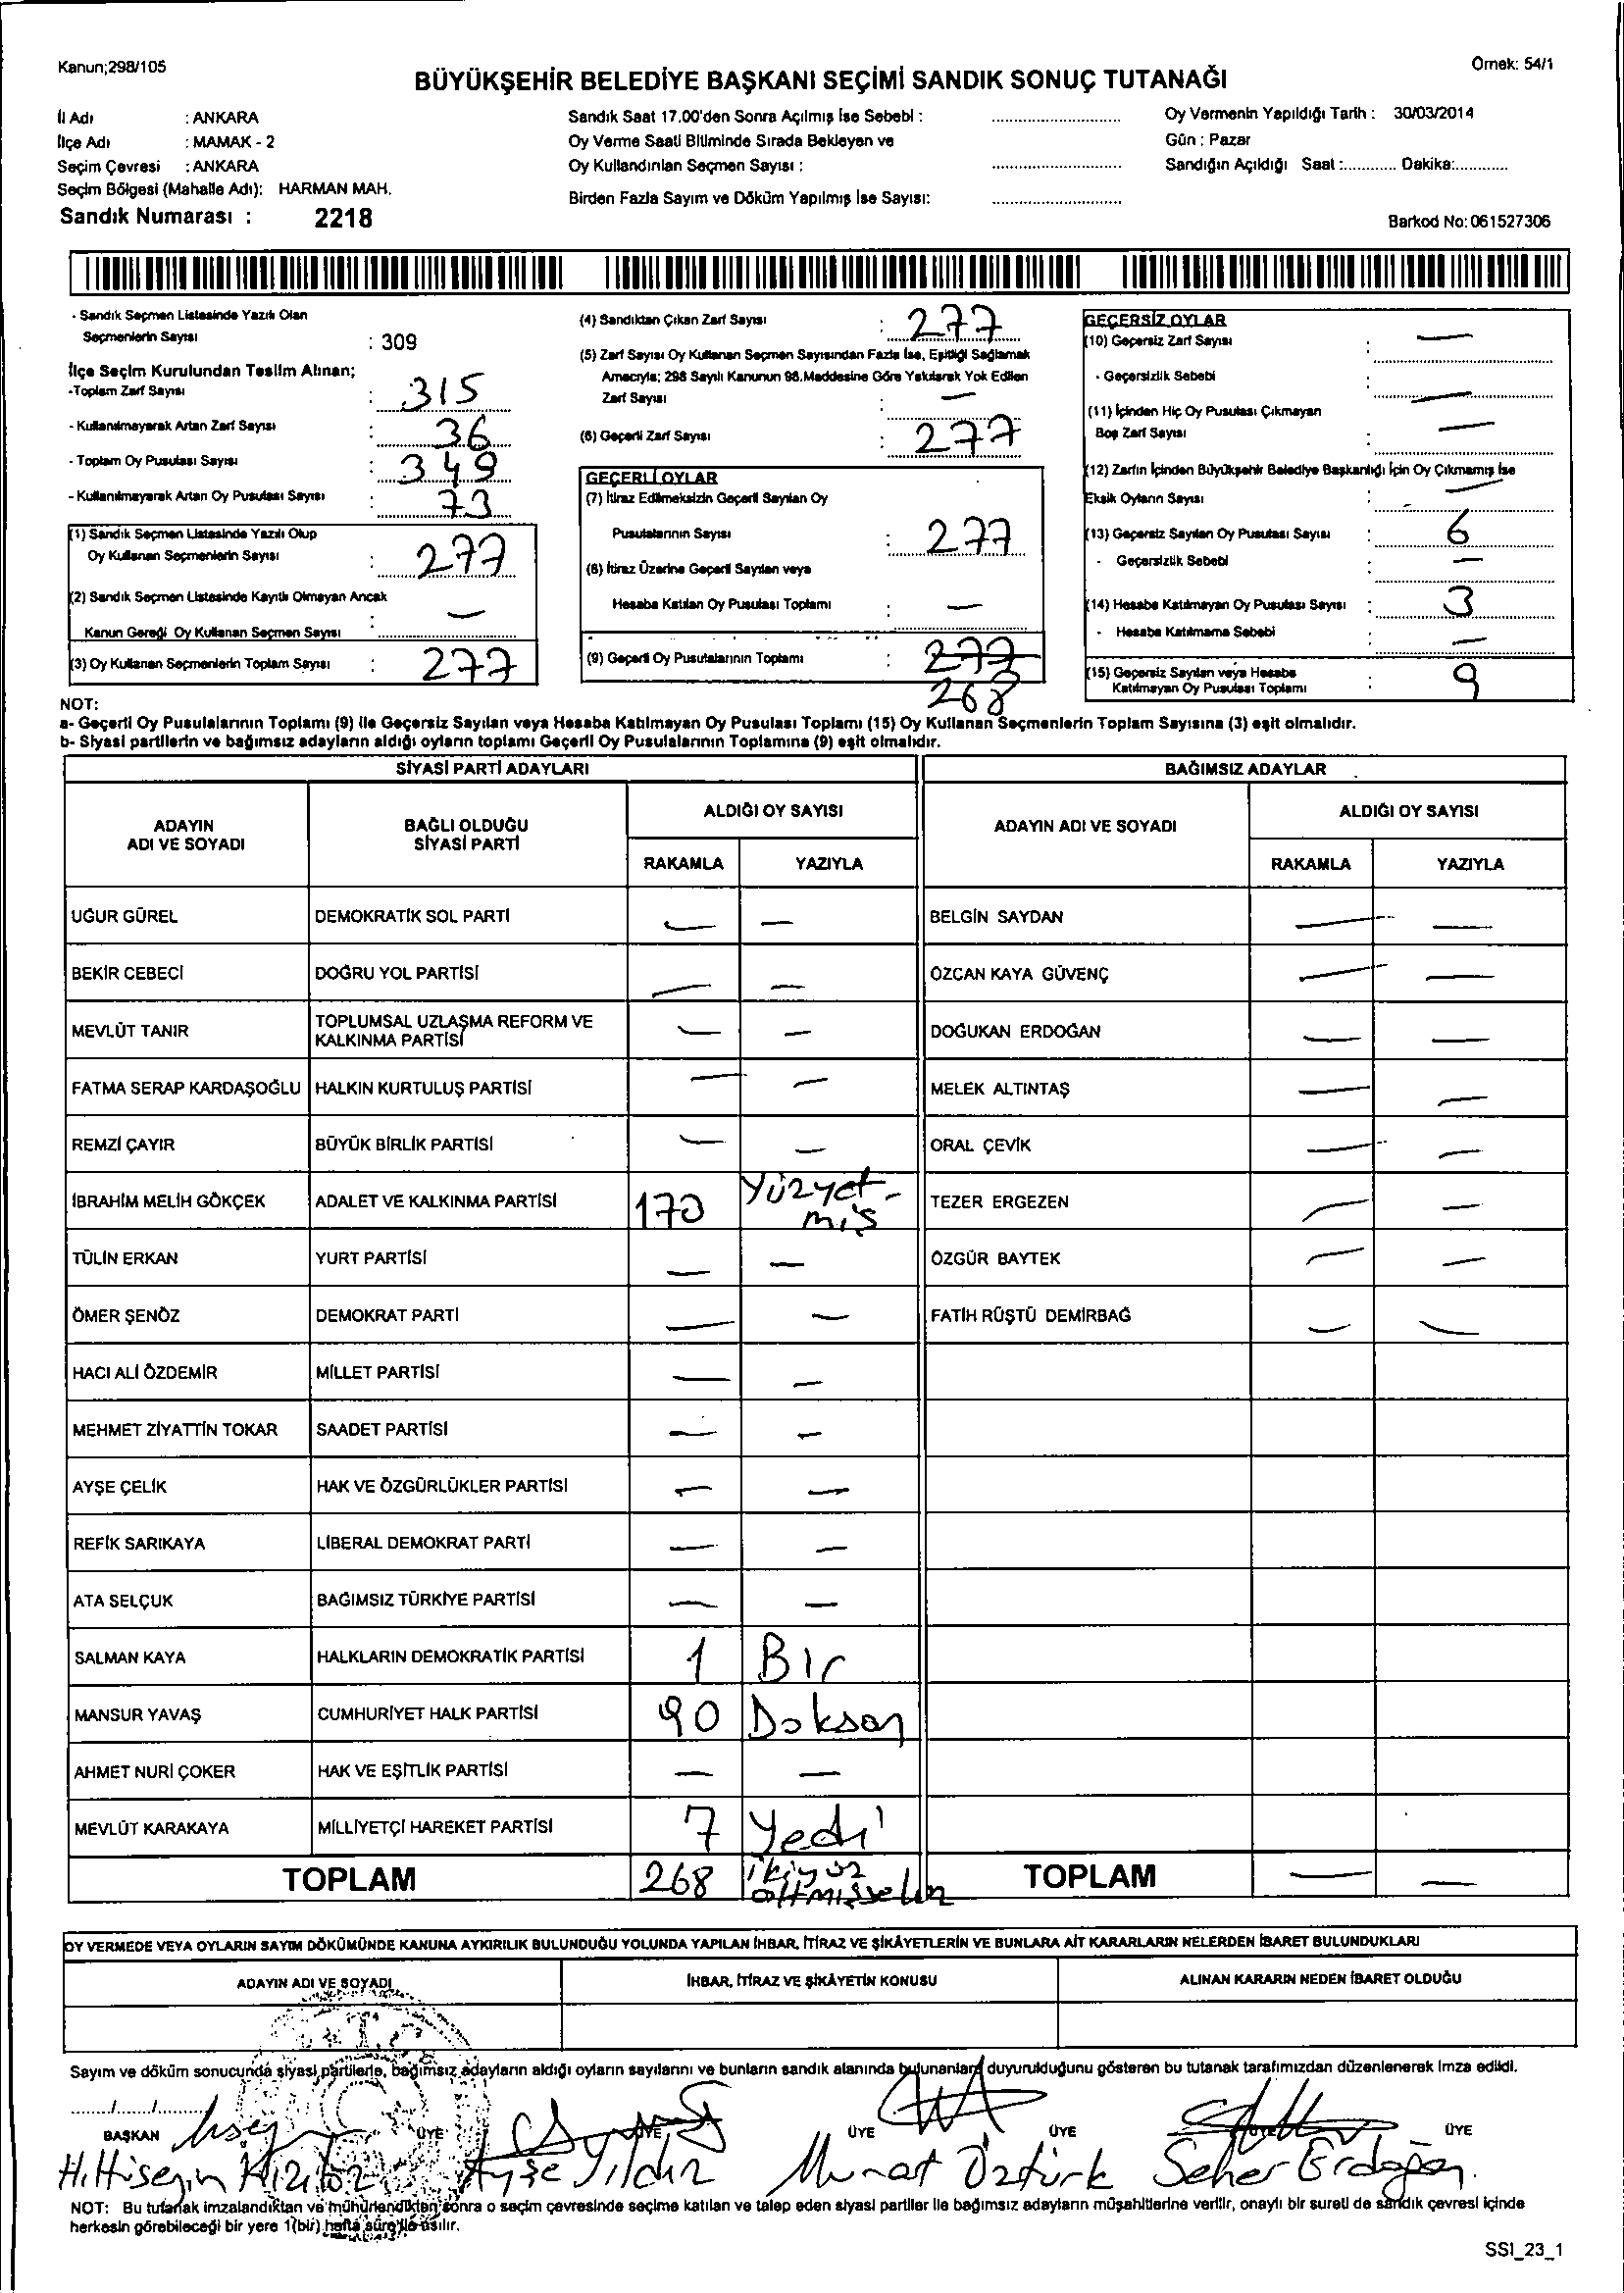 Kanun;298/105
Örnek: 54/1
BÜYÜKŞEHİR BELEDİYE BAŞKANI SEÇİMİ SANDIK SONUÇ TUTANAĞI
İl Adı : ANKARA
İlçe Adı : MAMAK - 2
Seçim Çevresi : ANKARA
Seçim Bölgesi (Mahalle Adı): HARMAN MAH.
Sandık Numarası : 2218
Sandık Saat 17.00'den Sonra Açılmış İse Sebebi : ............................
Oy Verme Saati Bitiminde Sırada Bekleyen ve
Oy Kullandırılan Seçmen Sayısı : ............................
Birden Fazla Sayım ve Döküm Yapılmış İse Sayısı: ............................
Oy Vermenin Yapıldığı Tarih : 30/03/2014
Gün : Pazar
Sandığın Açıldığı Saat :............ Dakika:............
Barkod No: 061527306
- Sandık Seçmen Listesinde Yazılı Olan
Seçmenlerin Sayısı : 309
İlçe Seçim Kurulundan Teslim Alınan;
-Toplam Zarf Sayısı : 315
- Kullanılmayarak Artan Zarf Sayısı : 36
- Toplam Oy Pusulası Sayısı : 349
- Kullanılmayarak Artan Oy Pusulası Sayısı : 73
(1) Sandık Seçmen Listesinde Yazılı Olup
Oy Kullanan Seçmenlerin Sayısı : 277
(2) Sandık Seçmen Listesinde Kayıtlı Olmayan Ancak
Kanun Gereği Oy Kullanan Seçmen Sayısı : —
(3) Oy Kullanan Seçmenlerin Toplam Sayısı : 277
(4) Sandıktan Çıkan Zarf Sayısı : 277
(5) Zarf Sayısı Oy Kullanan Seçmen Sayısından Fazla İse, Eşitliği Sağlamak
Amacıyla; 298 Sayılı Kanunun 98.Maddesine Göre Yakılarak Yok Edilen
Zarf Sayısı : —
(6) Geçerli Zarf Sayısı : 277
GEÇERLİ OYLAR
(7) İtiraz Edilmeksizin Geçerli Sayılan Oy
Pusulalarının Sayısı : 277
(8) İtiraz Üzerine Geçerli Sayılan veya
Hesaba Katılan Oy Pusulası Toplamı : —
(9) Geçerli Oy Pusulalarının Toplamı : 277
268
GEÇERSİZ OYLAR
(10) Geçersiz Zarf Sayısı : —
- Geçersizlik Sebebi : —
(11) İçinden Hiç Oy Pusulası Çıkmayan
Boş Zarf Sayısı : —
(12) Zarfın İçinden Büyükşehir Belediye Başkanlığı İçin Oy Çıkmamış İse
Eksik Oyların Sayısı : —
(13) Geçersiz Sayılan Oy Pusulası Sayısı : 6
- Geçersizlik Sebebi : —
(14) Hesaba Katılmayan Oy Pusulası Sayısı : 3
- Hesaba Katılmama Sebebi : —
(15) Geçersiz Sayılan veya Hesaba
Katılmayan Oy Pusulası Toplamı : 9
NOT:
a- Geçerli Oy Pusulalarının Toplamı (9) ile Geçersiz Sayılan veya Hesaba Katılmayan Oy Pusulası Toplamı (15) Oy Kullanan Seçmenlerin Toplam Sayısına (3) eşit olmalıdır.
b- Siyasi partilerin ve bağımsız adayların aldığı oyların toplamı Geçerli Oy Pusulalarının Toplamına (9) eşit olmalıdır.
SİYASİ PARTİ ADAYLARI
ADAYIN ADI VE SOYADI BAĞLI OLDUĞU SİYASİ PARTİ ALDIĞI OY SAYISI
RAKAMLA YAZIYLA
UĞUR GÜREL DEMOKRATİK SOL PARTİ — —
BEKİR CEBECİ DOĞRU YOL PARTİSİ — —
MEVLÜT TANIR TOPLUMSAL UZLAŞMA REFORM VE KALKINMA PARTİSİ — —
FATMA SERAP KARDAŞOĞLU HALKIN KURTULUŞ PARTİSİ — —
REMZİ ÇAYIR BÜYÜK BİRLİK PARTİSİ — —
İBRAHİM MELİH GÖKÇEK ADALET VE KALKINMA PARTİSİ 170 Yüzyet-miş
TÜLİN ERKAN YURT PARTİSİ — —
ÖMER ŞENÖZ DEMOKRAT PARTİ — —
HACI ALİ ÖZDEMİR MİLLET PARTİSİ — —
MEHMET ZİYATTİN TOKAR SAADET PARTİSİ — —
AYŞE ÇELİK HAK VE ÖZGÜRLÜKLER PARTİSİ — —
REFİK SARIKAYA LİBERAL DEMOKRAT PARTİ — —
ATA SELÇUK BAĞIMSIZ TÜRKİYE PARTİSİ — —
SALMAN KAYA HALKLARIN DEMOKRATİK PARTİSİ 1 Bir
MANSUR YAVAŞ CUMHURİYET HALK PARTİSİ 90 Doksan
AHMET NURİ ÇOKER HAK VE EŞİTLİK PARTİSİ — —
MEVLÜT KARAKAYA MİLLİYETÇİ HAREKET PARTİSİ 7 Yedi
TOPLAM 268 ikiyüz altmışsekiz
BAĞIMSIZ ADAYLAR
ADAYIN ADI VE SOYADI ALDIĞI OY SAYISI
RAKAMLA YAZIYLA
BELGİN SAYDAN — —
ÖZCAN KAYA GÜVENÇ — —
DOĞUKAN ERDOĞAN — —
MELEK ALTINTAŞ — —
ORAL ÇEVİK — —
TEZER ERGEZEN — —
ÖZGÜR BAYTEK — —
FATİH RÜŞTÜ DEMİRBAĞ — —
TOPLAM — —
OY VERMEDE VEYA OYLARIN SAYIM DÖKÜMÜNDE KANUNA AYKIRILIK BULUNDUĞU YOLUNDA YAPILAN İHBAR, İTİRAZ VE ŞİKÂYETLERİN VE BUNLARA AİT KARARLARIN NELERDEN İBARET BULUNDUKLARI
ADAYIN ADI VE SOYADI İHBAR, İTİRAZ VE ŞİKÂYETİN KONUSU ALINAN KARARIN NEDEN İBARET OLDUĞU
Sayım ve döküm sonucunda siyasi partilerle, bağımsız adayların aldığı oyların sayılarını ve bunların sandık alanında bulunanlara duyurulduğunu gösteren bu tutanak tarafımızdan düzenlenerek imza edildi.
....../....../.........
BAŞKAN ÜYE ÜYE ÜYE ÜYE ÜYE ÜYE
Ayşe Yıldız Murat Öztürk Seher Erdoğan
NOT: Bu tutanak imzalandıktan ve mühürlendikten sonra o seçim çevresinde seçime katılan ve talep eden siyasi partiler ile bağımsız adayların müşahitlerine verilir, onaylı bir sureti de sandık çevresi içinde
herkesin görebileceği bir yere 1(bir) hafta süre ile asılır.
SSI_23_1